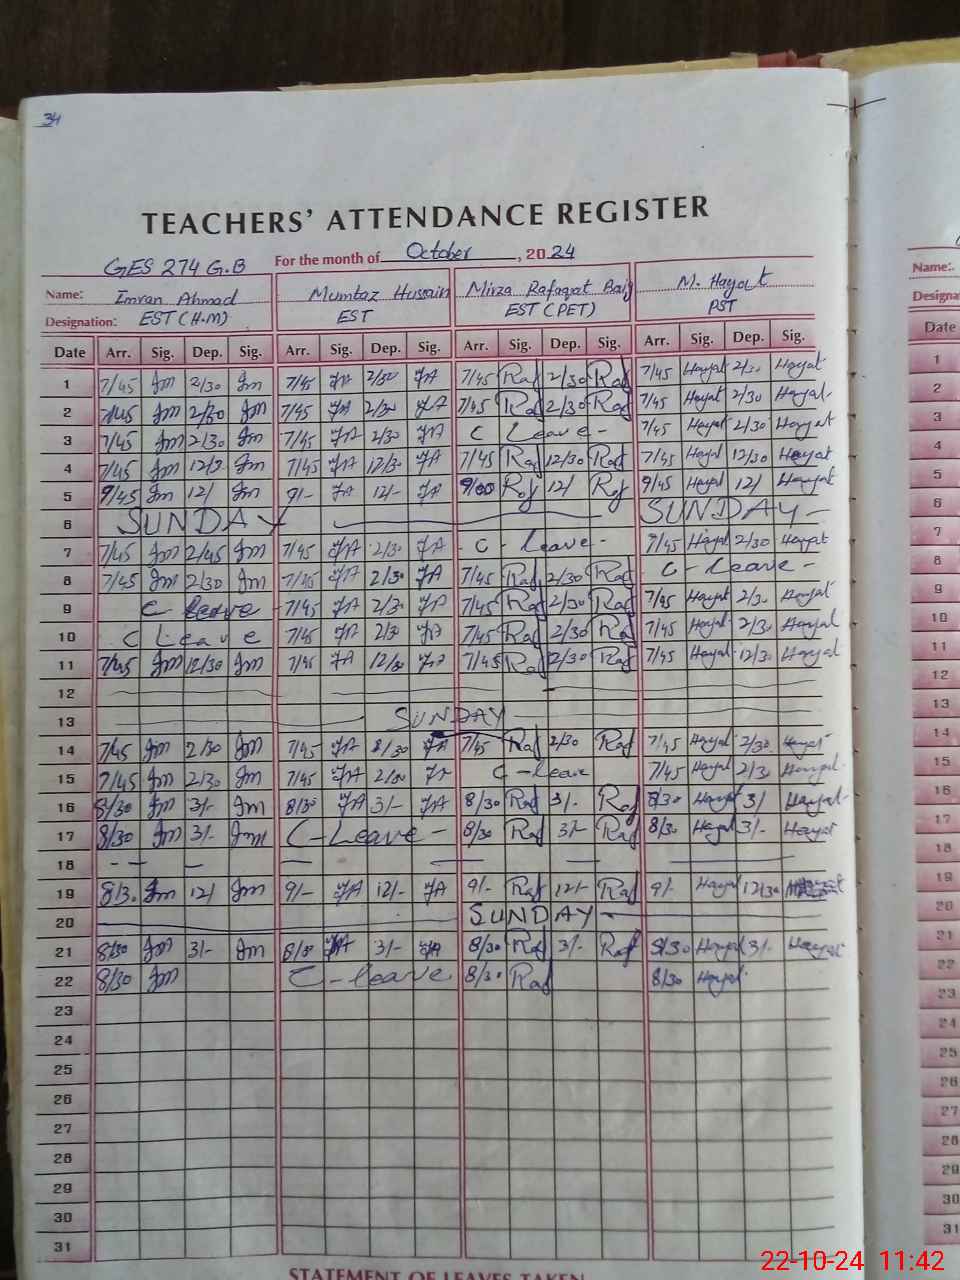 34
TEACHERS' ATTENDANCE REGISTER
GES 274 G.B For the month of October, 2024
Name: Imran Ahmad Mumtaz Hussain Mirza Rafaqat Baig M. Hayat Name:
Designation: EST (H.M) EST EST (PET) PST Designa
Date Arr. Sig. Dep. Sig. Arr. Sig. Dep. Sig. Arr. Sig. Dep. Sig. Arr. Sig. Dep. Sig. Date
1 7/45 Jm 2/30 Jm 7/45 JA 2/30 JA 7/45 Raf 2/30 Raf 7/45 Hayat 2/30 Hayat 1
2 7/45 Jm 2/30 Jm 7/45 JA 2/30 JA 7/45 Raf 2/30 Raf 7/45 Hayat 2/30 Hayat 2
3 7/45 Jm 2/30 Jm 7/45 JA 2/30 JA C Leave - 7/45 Hayat 2/30 Hayat 3
4 7/45 Jm 12/3 Jm 7/45 JA 12/30 JA 7/45 Raf 12/30 Raf 7/45 Hayat 12/30 Hayat 4
5 9/45 Jm 12/ Jm 9/- JA 12/- JA 9/00 Raf 12/ Raf 9/45 Hayat 12/ Hayat 5
6 SUNDAY SUNDAY - 6
7 7/45 Jm 2/45 Jm 7/45 JA 2/30 JA - C - Leave - 7/45 Hayat 2/30 Hayat 7
8 7/45 Jm 2/30 Jm 7/45 JA 2/30 JA 7/45 Raf 2/30 Raf C - Leave - 8
9 C leave - 7/45 JA 2/30 JA 7/45 Raf 2/30 Raf 7/45 Hayat 2/30 Hayat 9
10 C Leave 7/45 JA 2/30 JA 7/45 Raf 2/30 Raf 7/45 Hayat 2/30 Hayat 10
11 7/45 Jm 12/30 Jm 7/45 JA 12/30 JA 7/45 Raf 12/30 Raf 7/45 Hayat 12/30 Hayat 11
12 12
13 SUNDAY 13
14 7/45 Jm 2/30 Jm 7/45 JA 2/30 JA 7/45 Raf 2/30 Raf 7/45 Hayat 2/30 Hayat 14
15 7/45 Jm 2/30 Jm 7/45 JA 2/30 JA C - leave 7/45 Hayat 2/30 Hayat 15
16 8/30 Jm 3/- Jm 8/30 JA 3/- JA 8/30 Raf 3/- Raf 8/30 Hayat 3/ Hayat 16
17 8/30 Jm 3/- Jm C - Leave - 8/30 Raf 3/- Raf 8/30 Hayat 3/- Hayat 17
18 18
19 8/3. Jm 12/ Jm 9/- JA 12/- JA 9/- Raf 12/- Raf 9/- Hayat 12/30 19
20 SUNDAY - 20
21 8/30 Jm 3/- Jm 8/30 JA 3/- JA 8/30 Raf 3/- Raf 8/30 Hayat 3/- Hayat 21
22 8/30 Jm C - leave 8/30 Raf 8/30 Hayat 22
23 23
24 24
25 25
26 26
27 27
28 28
29 29
30 30
31 31
STATEMENT OF LEAVES TAKEN
22-10-24 11:42